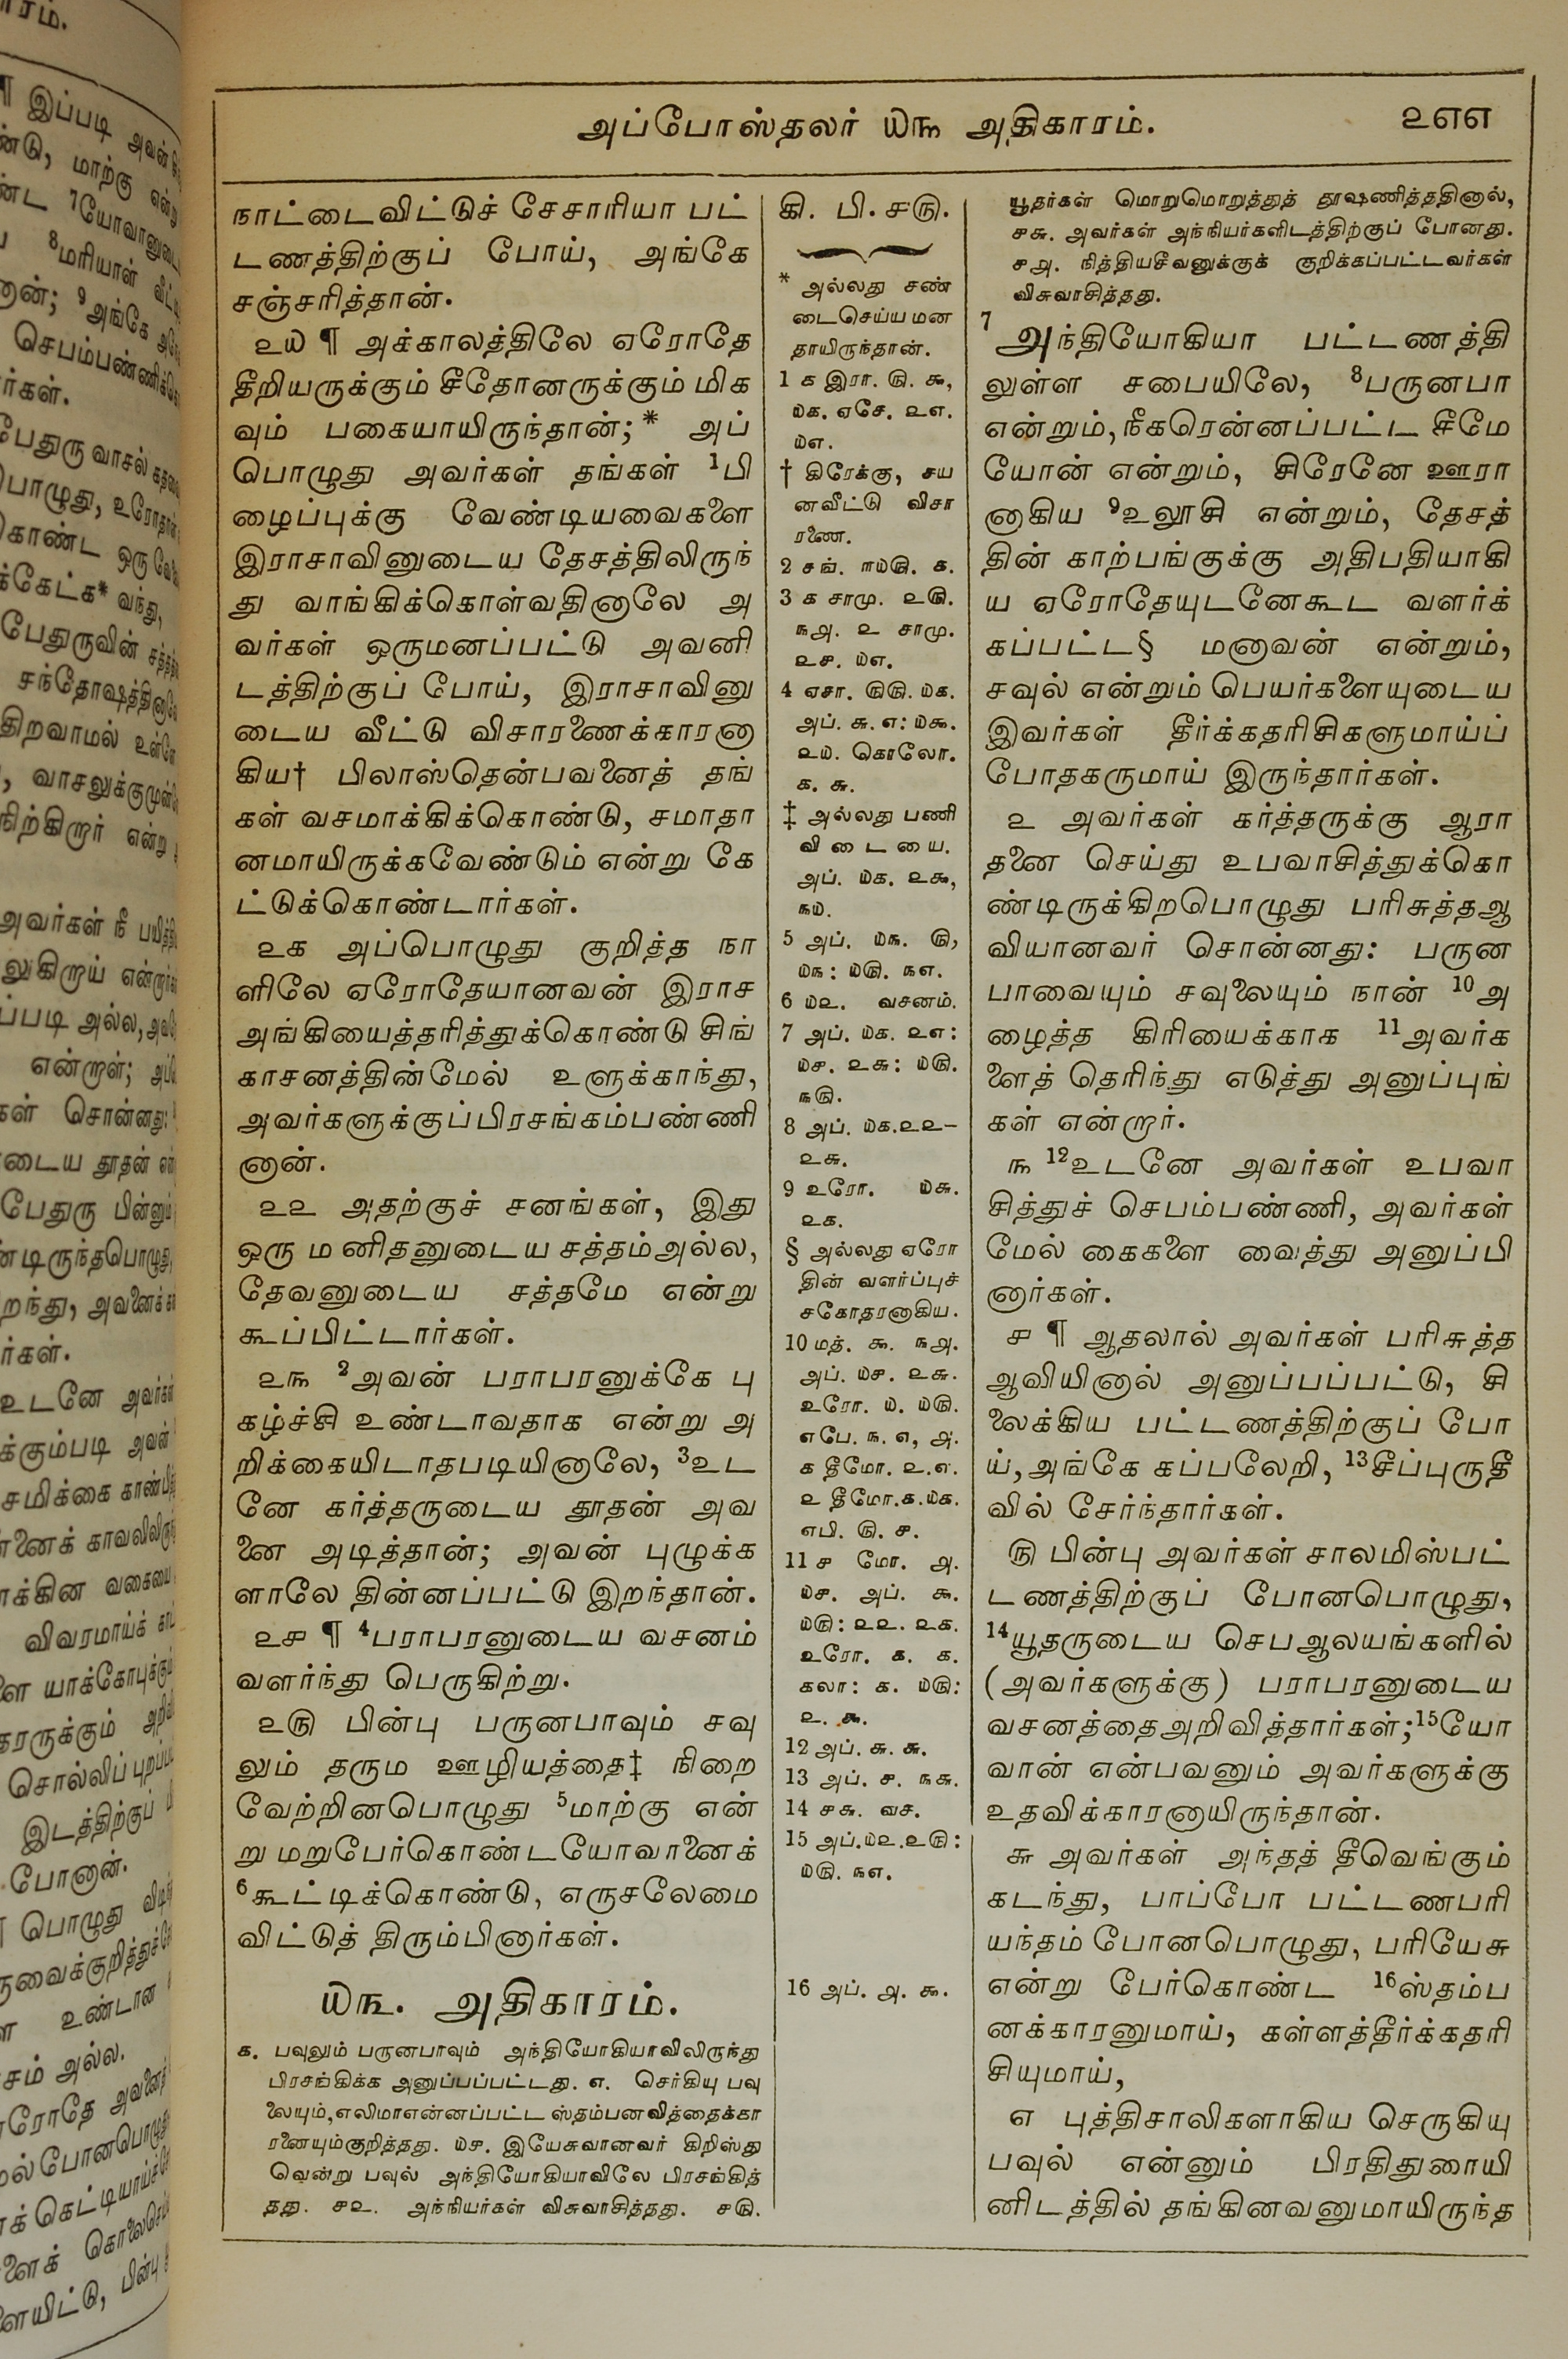 அப்போஸ்தலர் ௰௩ அதிகாரம்.
௨௭௭
நாட்டைவிட்டுச் சேசாரியா பட்
டணத்திற்குப் போய், அங்கே
சஞ்சரித்தான்.
௨௰ ¶ அக்காலத்திலே ஏரோதே
தீறியருக்கும் சீதோனருக்கும் மிக
வும் பகையாயிருந்தான்;* அப்
பொழுது அவர்கள் தங்கள் ¹பி
ழைப்புக்கு வேண்டியவைகளை
இராசாவினுடைய தேசத்திலிருந்
து வாங்கிக்கொள்வதினாலே அ
வர்கள் ஒருமனப்பட்டு அவனி
டத்திற்குப் போய், இராசாவினு
டைய வீட்டு விசாரணைக்காரனா
கிய† பிலாஸ்தென்பவனைத் தங்
கள் வசமாக்கிக்கொண்டு, சமாதா
னமாயிருக்கவேண்டும் என்று கே
ட்டுக்கொண்டார்கள்.
௨௧ அப்பொழுது குறித்த நா
ளிலே ஏரோதேயானவன் இராச
அங்கியைத்தரித்துக்கொண்டு சிங்
காசனத்தின்மேல் உளுக்காந்து,
அவர்களுக்குப்பிரசங்கம்பண்ணி
னான்.
௨௨ அதற்குச் சனங்கள், இது
ஒரு மனிதனுடைய சத்தம்அல்ல,
தேவனுடைய சத்தமே என்று
கூப்பிட்டார்கள்.
௨௩ ²அவன் பராபரனுக்கே பு
கழ்ச்சி உண்டாவதாக என்று அ
றிக்கையிடாதபடியினாலே, ³உட
னே கர்த்தருடைய தூதன் அவ
னை அடித்தான்; அவன் புழுக்க
ளாலே தின்னப்பட்டு இறந்தான்.
௨௪ ¶ ⁴பராபரனுடைய வசனம்
வளர்ந்து பெருகிற்று.
௨௫ பின்பு பருனபாவும் சவு
லும் தரும ஊழியத்தை‡ நிறை
வேற்றினபொழுது ⁵மாற்கு என்
று மறுபேர்கொண்டயோவானைக்
⁶கூட்டிக்கொண்டு, எருசலேமை
விட்டுத் திரும்பினார்கள்.
௰௩. அதிகாரம்.
௧. பவுலும் பருனபாவும் அந்தியோகியாவிலிருந்து
பிரசங்கிக்க அனுப்பப்பட்டது. ௭. செர்கியு பவு
லையும்,எலிமாஎன்னப்பட்ட ஸ்தம்பனவித்தைக்கா
ரனையும்குறித்தது. ௰௪. இயேசுவானவர் கிறிஸ்து
வென்று பவுல் அந்தியோகியாவிலே பிரசங்கித்
தது. ௪௨. அந்நியர்கள் விசுவாசித்தது. ௪௫.
கி. பி. ௪௫.
* அல்லது சண்
டைசெய்ய மன
தாயிருந்தான்.
1 ௧ இரா. ௫. ௯,
௰௧. ஏசே. ௨௭.
௰௭.
† கிரேக்கு, சய
னவீட்டு விசா
ரணை.
2 சங். ௱௰௫. ௧.
3 ௧ சாமு. ௨௫.
௩௮. ௨ சாமு.
௨௪. ௰௭.
4 ஏசா. ௫௫. ௰௧.
அப். ௬. ௭: ௰௯.
௨௰. கொலோ.
௧. ௬.
‡ அல்லது பணி
விடையை.
அப். ௰௧. ௨௯,
௩௰.
5 அப். ௰௩. ௫,
௰௩: ௰௫. ௩௭.
6 ௰௨. வசனம்.
7 அப். ௰௧. ௨௭:
௰௪. ௨௬: ௰௫.
௩௫.
8 அப். ௰௧.௨௨–
௨௬.
9 உரோ. ௰௬.
௨௧.
§ அல்லது ஏரோ
தின் வளர்ப்புச்
சகோதரனாகிய.
10 மத். ௯. ௩௮.
அப். ௰௪. ௨௬.
உரோ. ௰. ௰௫.
எபே. ௩. ௭, ௮.
௧ தீமோ. ௨.௭.
௨ தீமோ.௧.௰௧.
எபி. ௫. ௪.
11 ௪ மோ. ௮.
௰௪. அப். ௯.
௰௫: ௨௨. ௨௧.
உரோ. ௧. ௧.
கலா: ௧. ௰௫:
௨. ௯.
12 அப். ௬. ௬.
13 அப். ௪. ௩௬.
14 ௪௬. வச.
15 அப்.௰௨.௨௫:
௰௫. ௩௭.
16 அப். ௮. ௯.
யூதர்கள் மொறுமொறுத்துத் தூஷணித்ததினால்,
௪௬. அவர்கள் அந்நியர்களிடத்திற்குப் போனது.
௪௮. நித்தியசீவனுக்குக் குறிக்கப்பட்டவர்கள்
விசுவாசித்தது.
⁷அந்தியோகியா பட்டணத்தி
லுள்ள சபையிலே, ⁸பருனபா
என்றும்,நீகரென்னப்பட்ட சீமே
யோன் என்றும், சிரேனே ஊரா
னாகிய ⁹உலூசி என்றும், தேசத்
தின் காற்பங்குக்கு அதிபதியாகி
ய ஏரோதேயுடனேகூட வளர்க்
கப்பட்ட§ மனாவன் என்றும்,
சவுல் என்றும் பெயர்களையுடைய
இவர்கள் தீர்க்கதரிசிகளுமாய்ப்
போதகருமாய் இருந்தார்கள்.
௨ அவர்கள் கர்த்தருக்கு ஆரா
தனை செய்து உபவாசித்துக்கொ
ண்டிருக்கிறபொழுது பரிசுத்தஆ
வியானவர் சொன்னது: பருன
பாவையும் சவுலையும் நான் ¹⁰அ
ழைத்த கிரியைக்காக ¹¹அவர்க
ளைத் தெரிந்து எடுத்து அனுப்புங்
கள் என்றார்.
௩ ¹²உடனே அவர்கள் உபவா
சித்துச் செபம்பண்ணி, அவர்கள்
மேல் கைகளை வைத்து அனுப்பி
னார்கள்.
௪ ¶ ஆதலால் அவர்கள் பரிசுத்த
ஆவியினால் அனுப்பப்பட்டு, சி
லைக்கிய பட்டணத்திற்குப் போ
ய்,அங்கே கப்பலேறி, ¹³சீப்புருதீ
வில் சேர்ந்தார்கள்.
௫ பின்பு அவர்கள் சாலமிஸ்பட்
டணத்திற்குப் போனபொழுது,
¹⁴யூதருடைய செபஆலயங்களில்
(அவர்களுக்கு) பராபரனுடைய
வசனத்தைஅறிவித்தார்கள்;¹⁵யோ
வான் என்பவனும் அவர்களுக்கு
உதவிக்காரனாயிருந்தான்.
௬ அவர்கள் அந்தத் தீவெங்கும்
கடந்து, பாப்போ பட்டணபரி
யந்தம் போனபொழுது, பரியேசு
என்று பேர்கொண்ட ¹⁶ஸ்தம்ப
னக்காரனுமாய், கள்ளத்தீர்க்கதரி
சியுமாய்,
௭ புத்திசாலிகளாகிய செருகியு
பவுல் என்னும் பிரதிதுரையி
னிடத்தில் தங்கினவனுமாயிருந்த